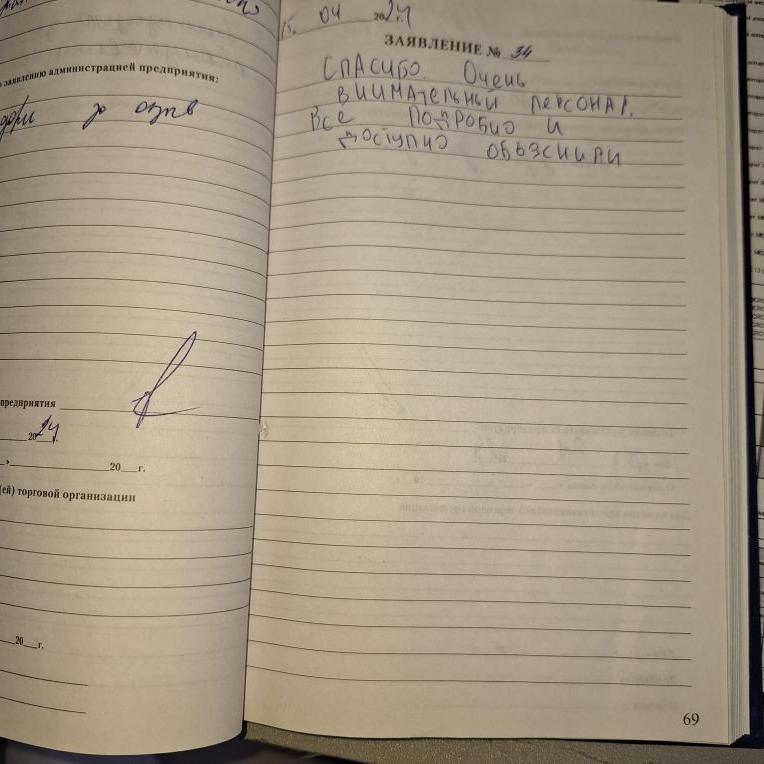 о заявлению администрацией предприятия:
предприятия
2024
20 г.
(ей) торговой организации
20 г.
15. 04 2024
ЗАЯВЛЕНИЕ № 34
СПАСИБО. Очень
ВНИМАТЕЛЬНЫЙ ПЕРСОНАЛ.
Все ПОДРОБНО И
ДОСТУПНО ОБЬЗСНИЛИ
69